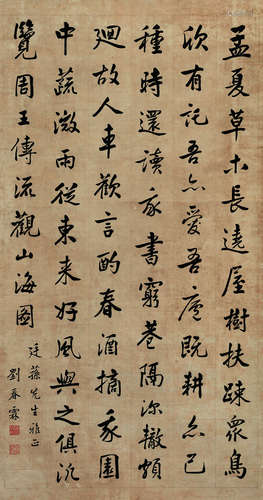 孟夏草木長遶屋樹扶踈衆鳥
欣有託吾亦愛吾廬既耕亦已
種時還讀我書窮巷隔深轍頗
廻故人車歡言酌春酒摘我園
中蔬微雨從東來好風與之俱汎
覽周王傳流觀山海圖
廷蓀先生雅正
劉春霖